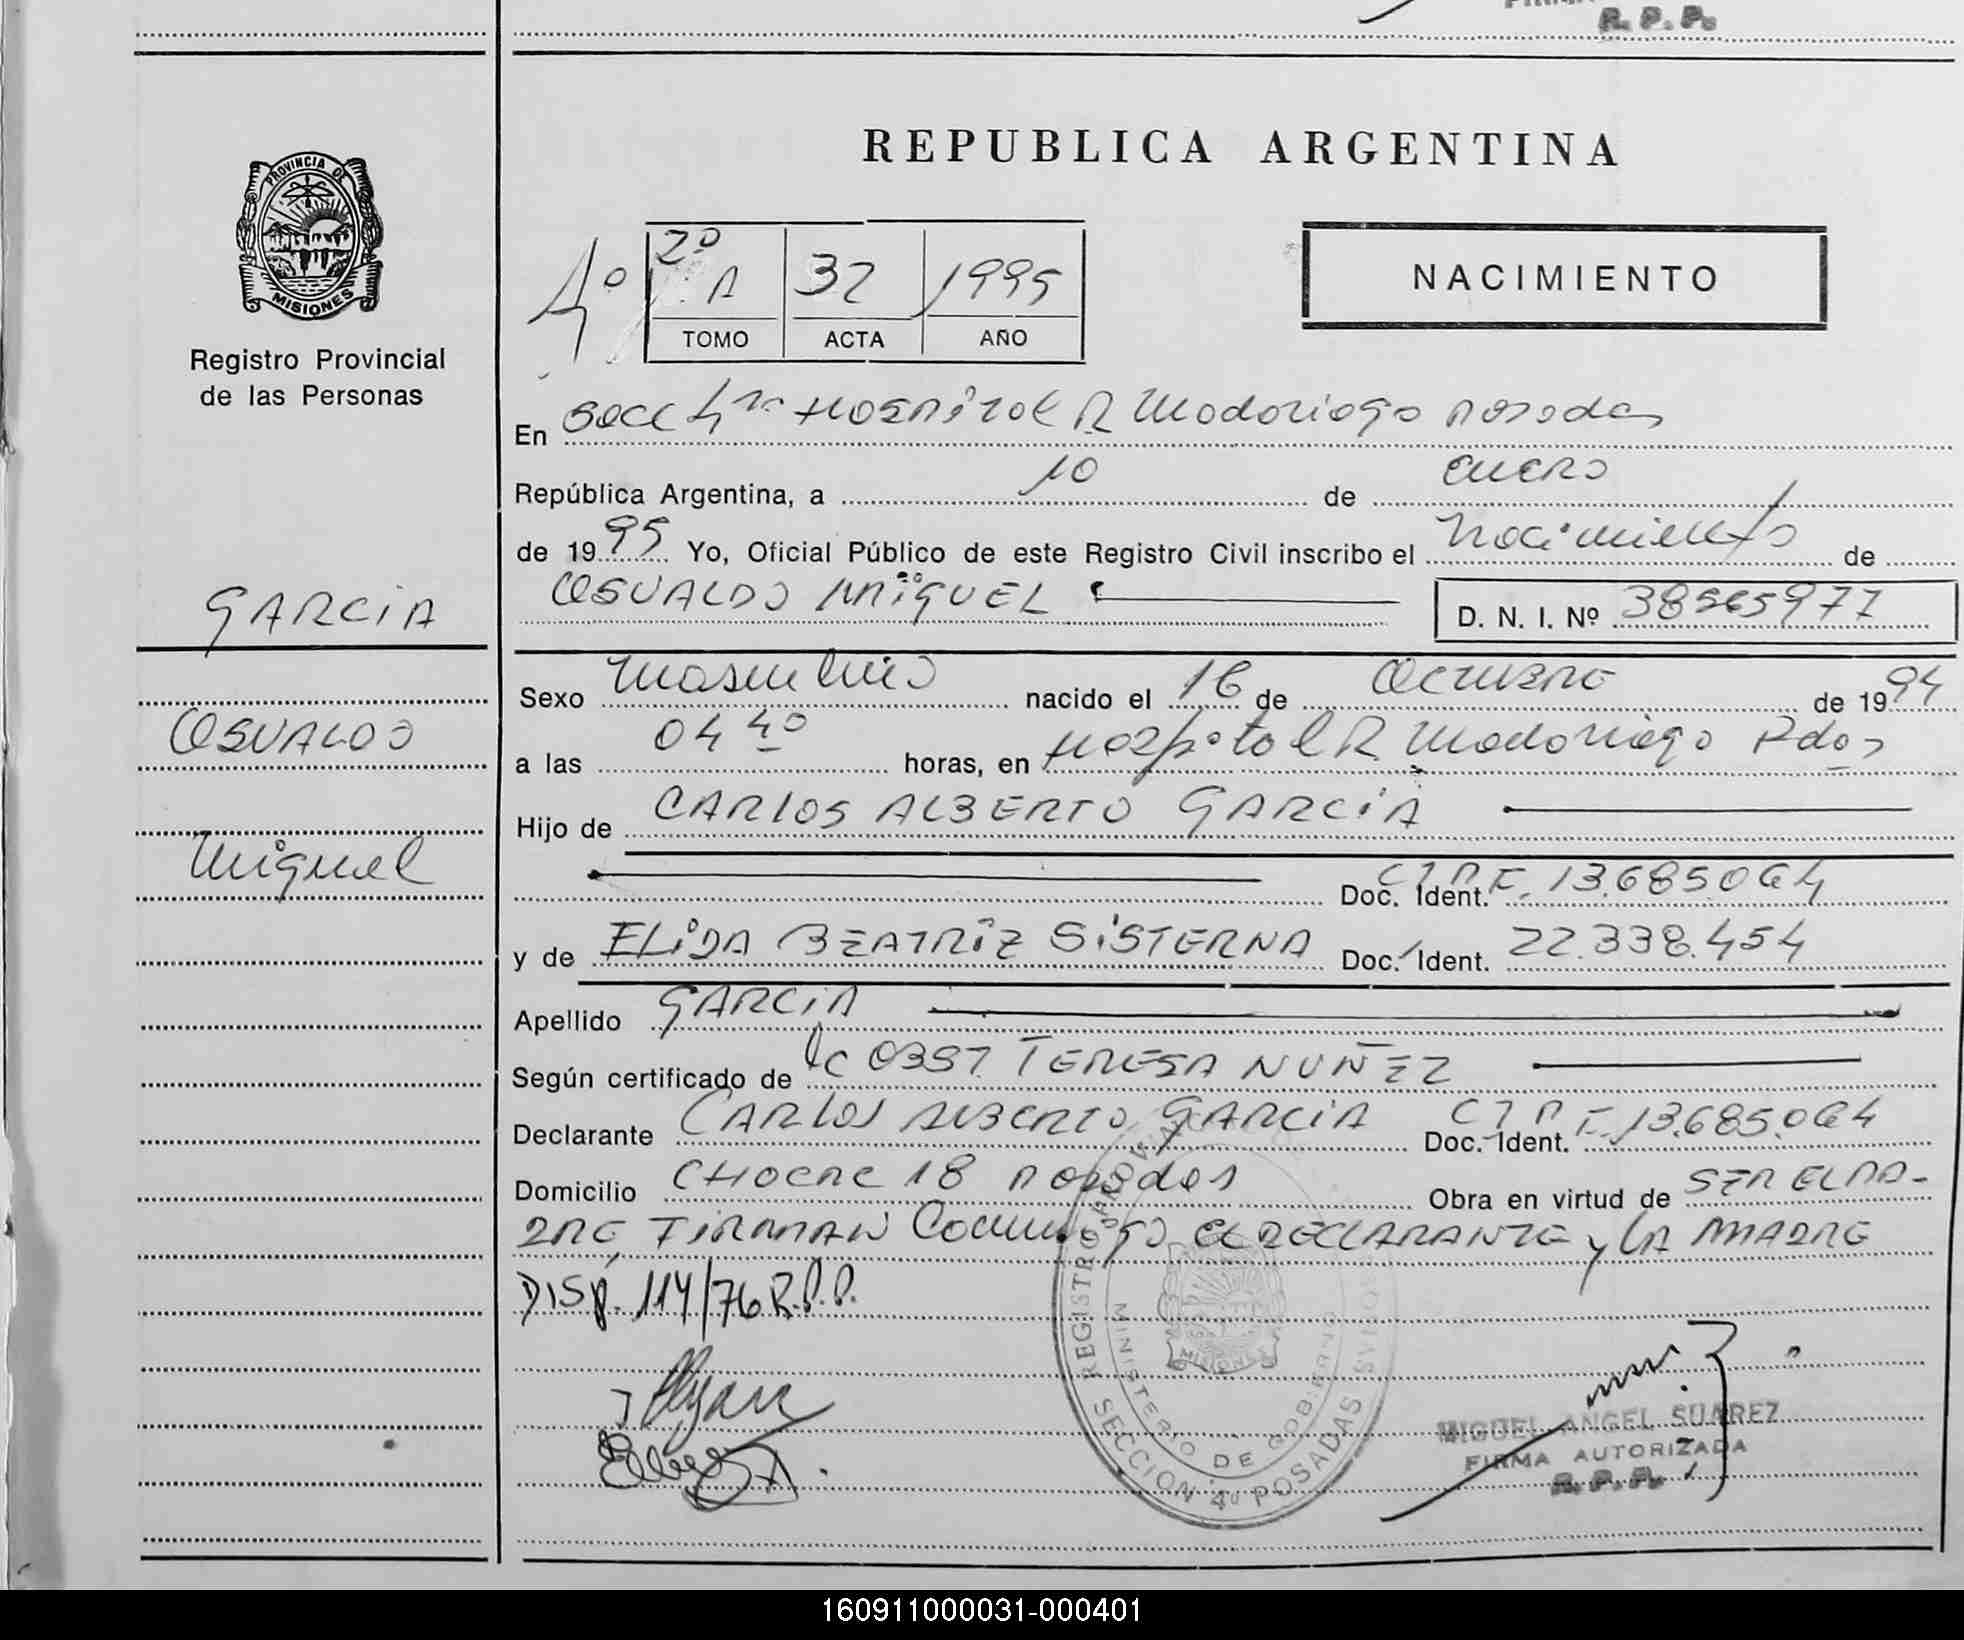 R. P. P.
REPUBLICA ARGENTINA
PROVINCIA DE
MISIONES
Registro Provincial
de las Personas
4º
2º A 32 1995
TOMO ACTA AÑO
NACIMIENTO
En Secc 4ta Hospital R Madariaga Posadas
República Argentina, a 10 de enero
de 1995 Yo, Oficial Público de este Registro Civil inscribo el nacimiento de
OSVALDO MIGUEL
D. N. I. Nº 38565977
GARCIA
OSVALDO
Miguel
Sexo masculino nacido el 16 de OCTUBRE de 1994
a las 04 40 horas, en Hospital R Madariaga Pdas
Hijo de CARLOS ALBERTO GARCIA
Doc. Ident. C.I.P.F. 13.685.064
y de ELIDA BEATRIZ SISTERNA Doc. Ident. 22.338.454
Apellido GARCIA
Según certificado de Lc OBST TERESA NUÑEZ
Declarante CARLOS ALBERTO GARCIA Doc. Ident. C.I.P.F. 13.685.064
Domicilio CHACRA 18 Posadas Obra en virtud de SER EL PA-
DRE, FIRMAN Conmigo EL DECLARANTE y LA MADRE
DISP. 114/76 R.P.P.
REGISTRO
MINISTERIO DE GOBIERNO
MISIONES
SECCION 4º POSADAS
MIGUEL ANGEL SUAREZ
FIRMA AUTORIZADA
R. P. P.
160911000031-000401